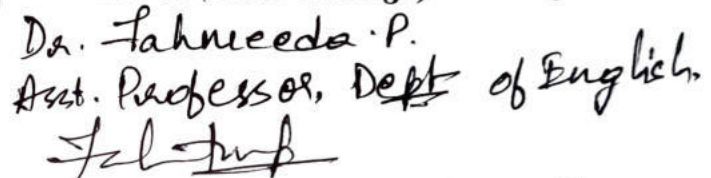 Dr. Fahmeeda .P.
Asst. Professor, Dept of English.